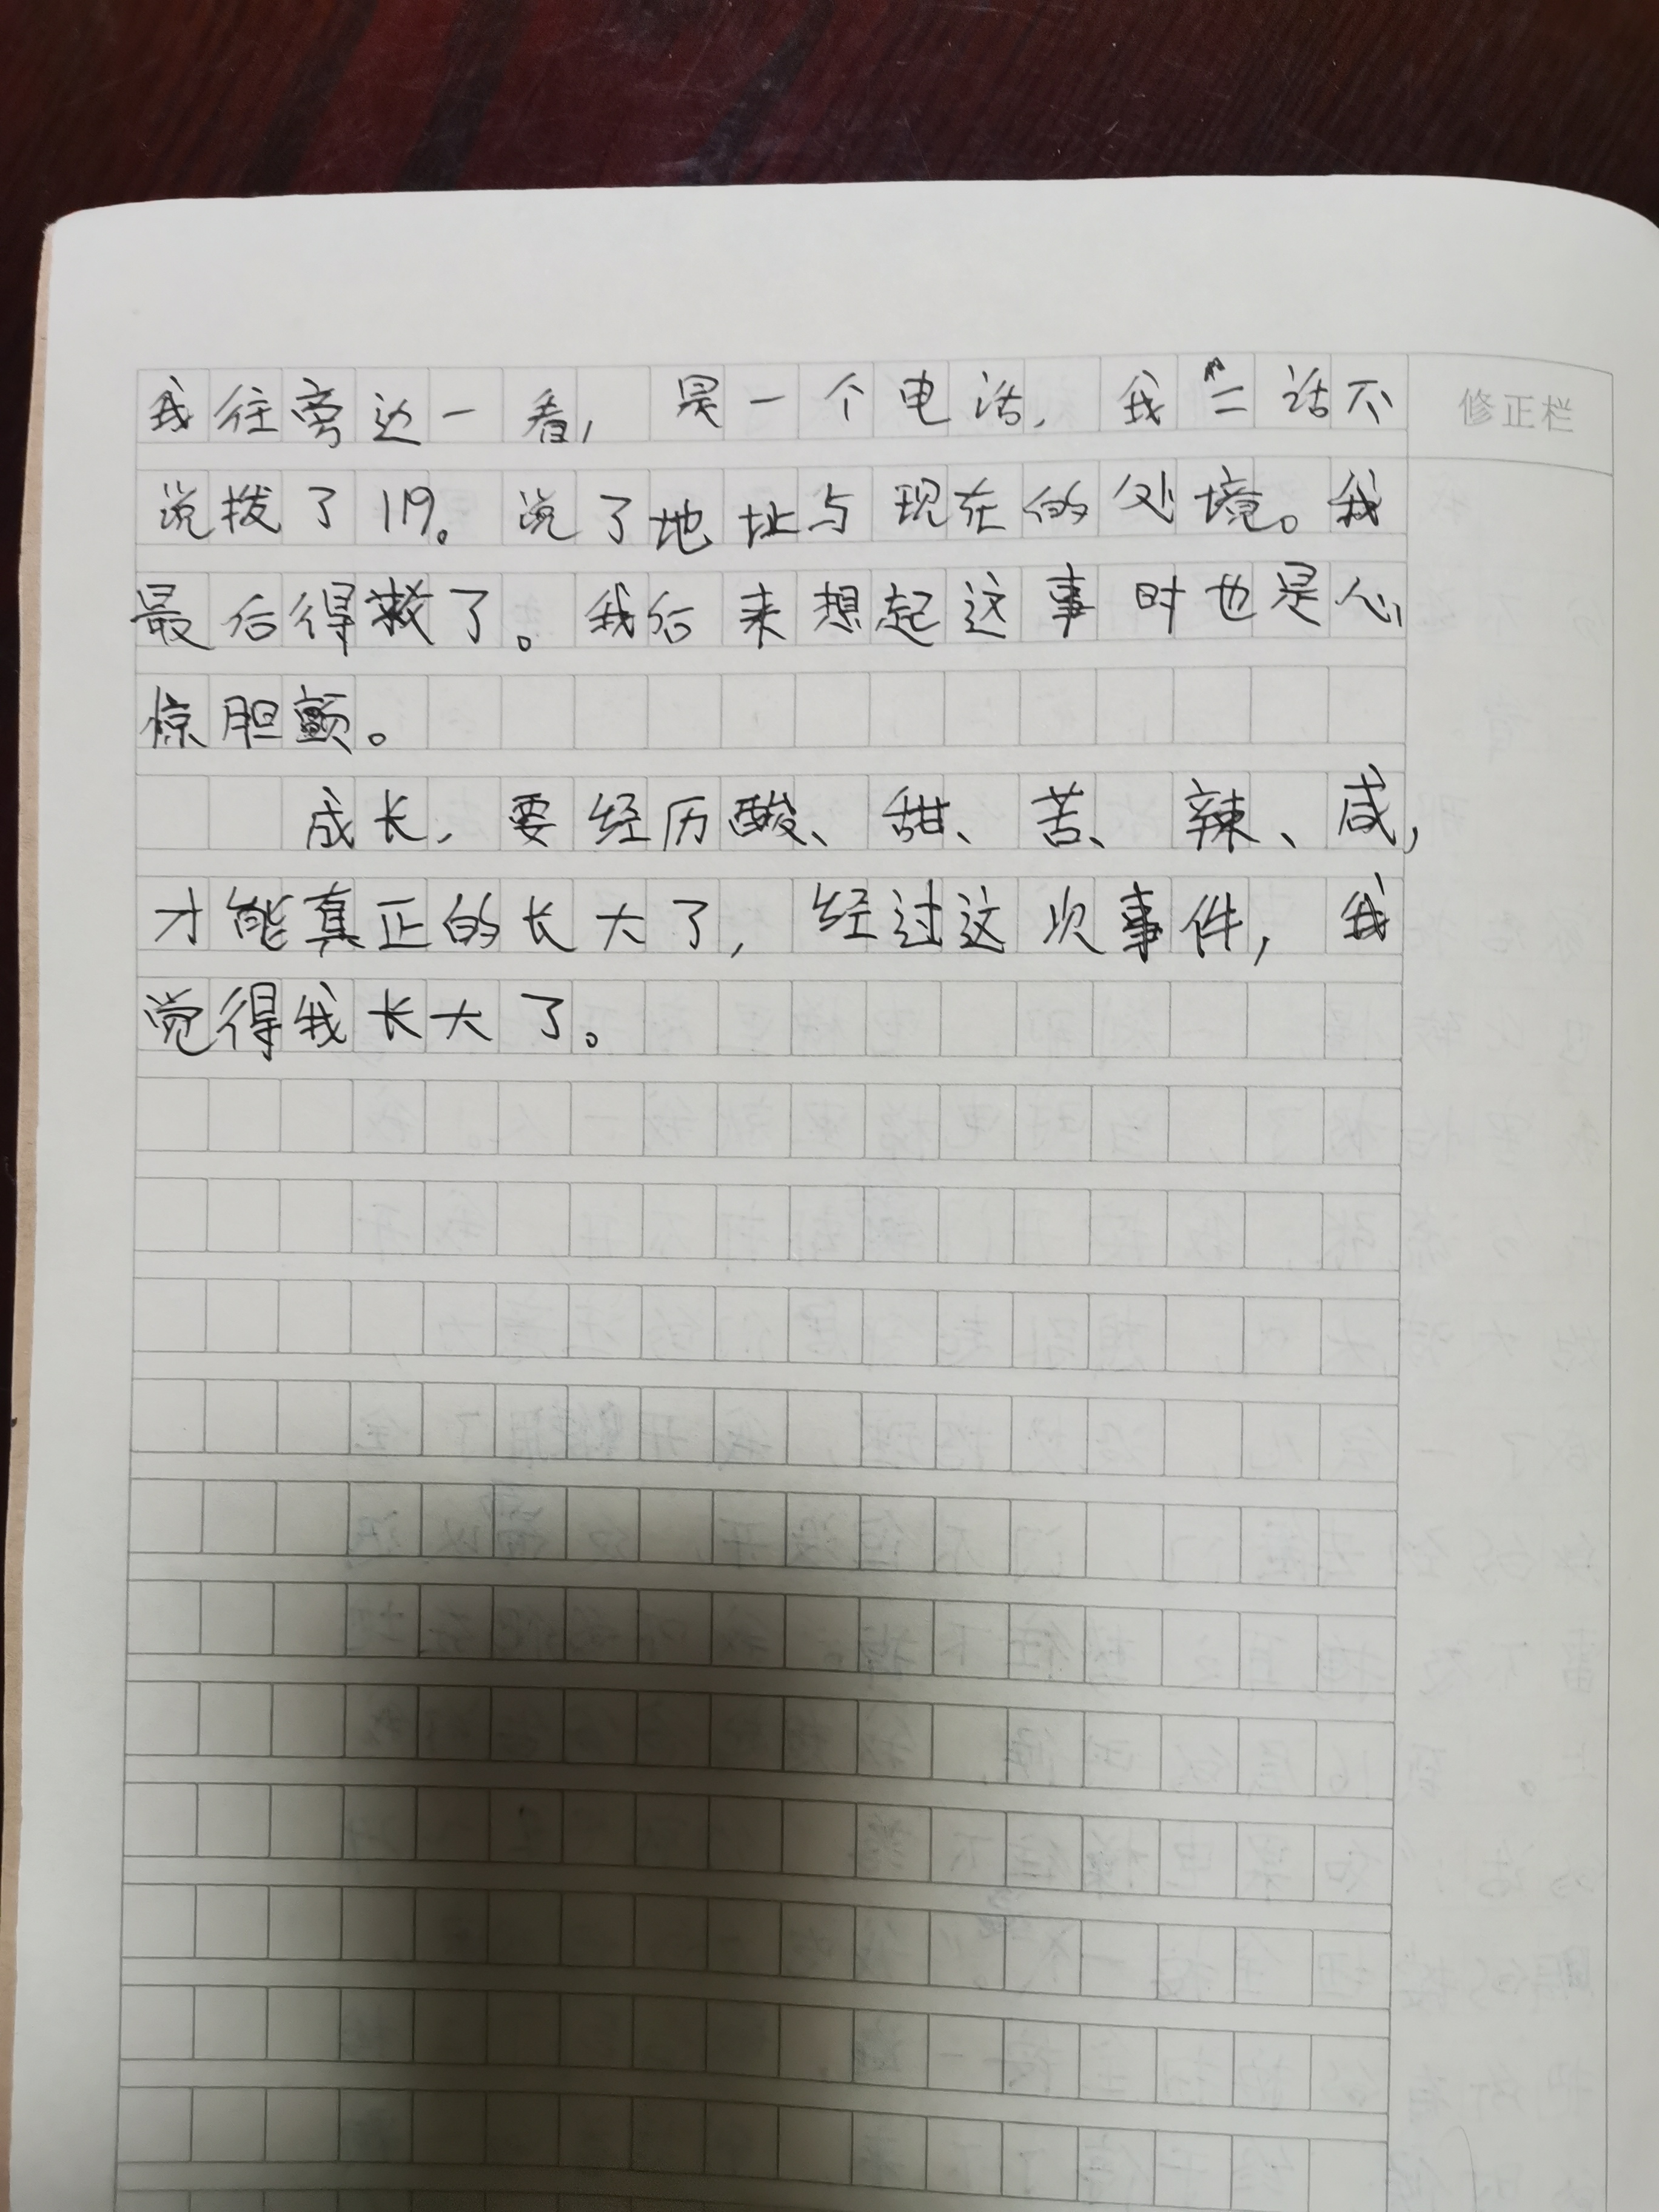 修正栏
我往旁边一看，是一个电话，我二话不
说拨了119。说了地址与现在的处境。我
最后得救了。我后来想起这事时也是心
惊胆颤。
成长，要经历酸、甜、苦、辣、咸，
才能真正的长大了，经过这次事件，我
觉得我长大了。